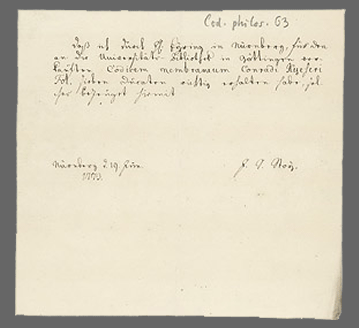 Cod. philos. 63
Daß ich durch H. Eyring in Nürnberg, für den
an die Universitäts-Bibliothek in Göttingen ver-
kauften Codicem membranaceum Conradi Kyeseri
Fol. sieben Ducaten richtig erhalten habe, sol-
ches bezeuget hiermit
Nürnberg d. 19. Jun.
1773.